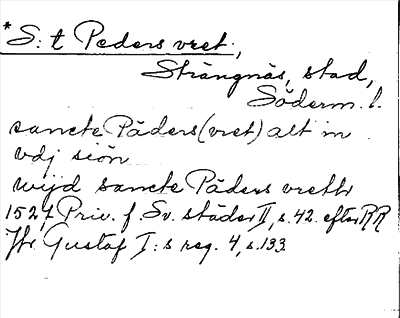 *S:t Peders vret,
Strängnäs, stad,
Söderm. l.
sancte Päders (vret) alt in
vdj siön
wijd sancte Päders vreth
1524 Priv. f. Sv. städer II, s. 42. efter RR
Gustaf I:s reg. 4, s. 133